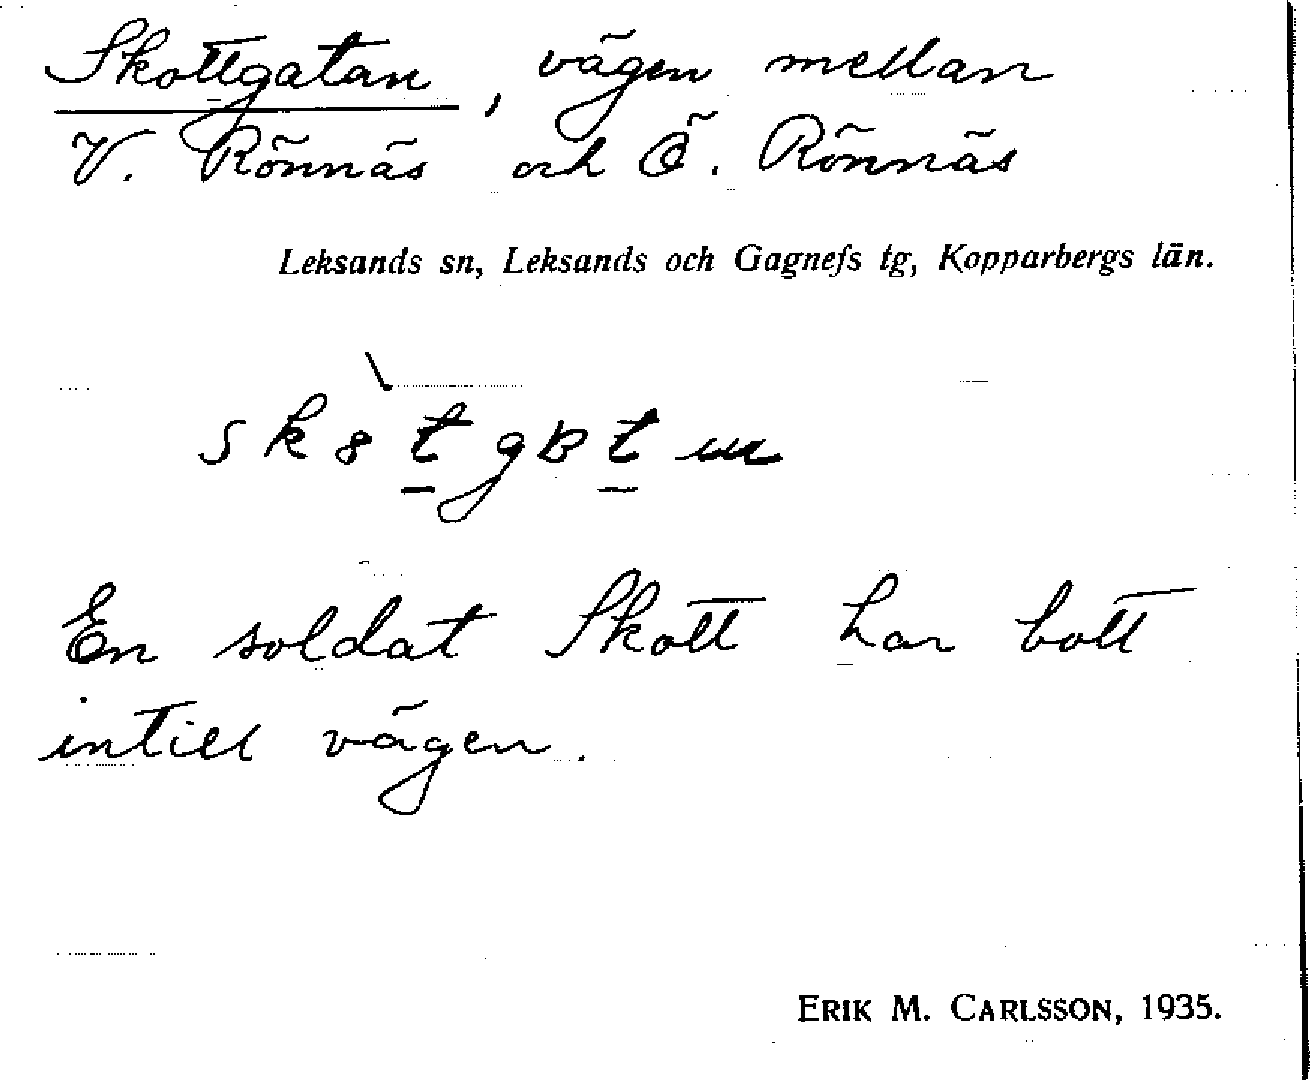 Skottgatan, vägen mellan
V. Rönnäs och Ö. Rönnäs
Leksands sn, Leksands och Gagnefs tg, Kopparbergs län.
En soldat Skott har bott
intill vägen.
ERIK M. CARLSSON, 1935.